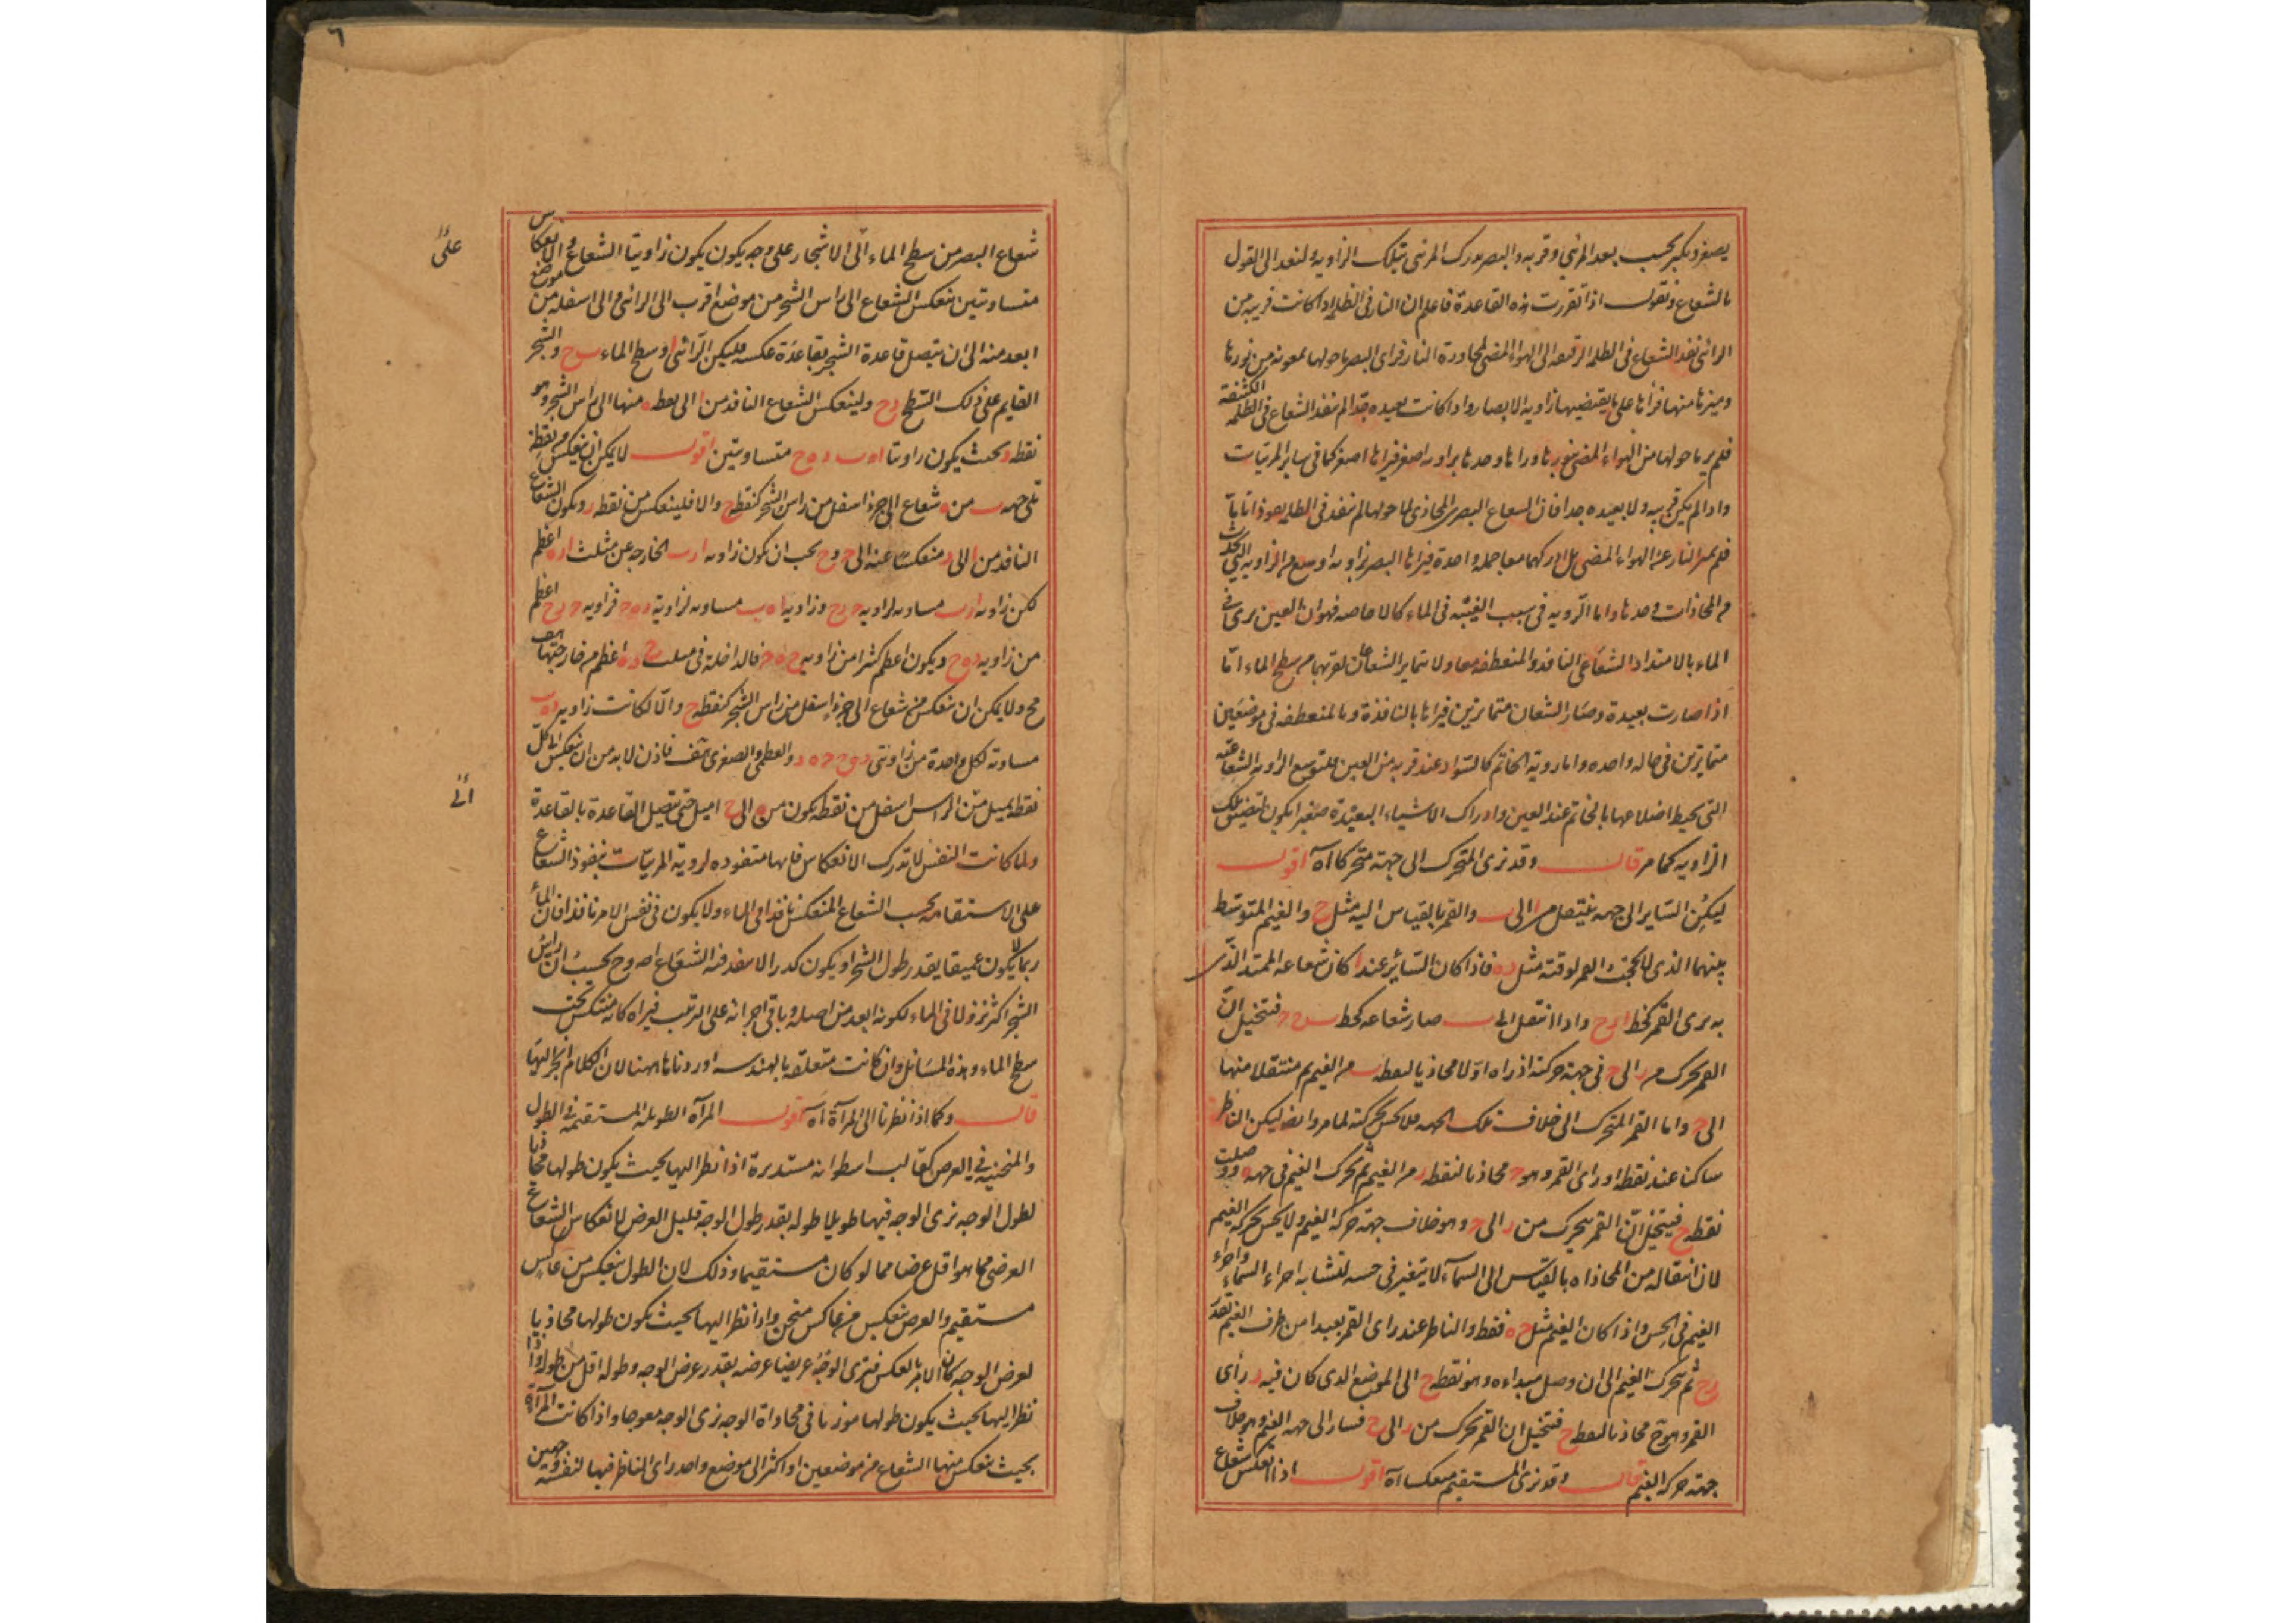 يصغر ويكبر بحسب بعد المرئي وقربه والبصر يدرك المرئي بتلك الزاوية ولنعد الى القول
بالشعاع ونقول اذا تقررت هذه القاعدة فاعلم ان النار فى الظلمة اذا كانت قريبة من
الرائى نفذ الشعاع فى الظلمة الرقيقة الى الهواء المضى لمجاورة النار فراى البصر ما حولها بمعونة من نورها
وميزها منها فرأها على ما يقتضيها زاوية الابصار واذا كانت بعيدة جدا لم ينفذ الشعاع فى الظلمة الكثيفة
فلم ير ما حولها من الهواء المضى بنورها وراها وحدها بزاوية اصغر فيراها اصغر كما فى ساير المرئيات
واذا لم يكن قريبة ولا بعيدة جدا فان الشعاع البصرى المحاذى لما حولها لم ينفذ فى الظلمة نفوذا تاما
فلم يميز النار عن الهواء المضى بل ادركهما معا جملة واحدة فيراها البصر بزاوية اوسع من الزاوية التى تحدث
من المحاذات وحدها واما الرؤية فى سبب العنبة فى الماء كالاجاصة فهو ان العين يرى فى
الماء بالامتداد الشعاعى النافذ والمنعطفة معا ولا يتمايز الشعاعان لقربهما من سطح الماء اما
اذا صارت بعيدة وصار الشعاعان متمايزين فيراها بالنافذة وبالمنعطفة فى موضعين
متمايزين فى حالة واحدة واما رؤية الخاتم كالسوار عند قربه من العين فلتوسع الزاوية الشعاعية
التى يحيط اضلاعها بالخاتم عند العين وادراك الاشياء البعيدة صغيرا يكون لتضيق تلك
الزاوية كما مر قال وقد نرى المتحرك الى جهة متحركا اه اقول
ليكن الساير الى جهة ينتقل من ا الى ب والقمر بالقياس اليه مثل ج والغيم المتوسط
بينهما الذى لا يحجب القمر لرقته مثل ده فاذا كان السائر عند ا كان شعاعه الممتد الذى
به يرى القمر كخط ا د ج واذا انتقل الى ب صار شعاعه كخط ب ح ج فيتخيل ان
القمر تحرك من د الى ح فى جهة حركته اذ راه اولا محاذيا لنقطة د من الغيم ثم منتقلا منها
الى ح واما القمر المتحرك الى خلاف تلك الجهة فلا يحس بحركته لما مر وايضا ليكن الناظر
ساكنا عند نقطة ا وراى القمر وهو ج محاذيا لنقطة د من الغيم ثم تحرك الغيم فى جهة ه د ووصلت
نقطة ح فيتخيل ان القمر يتحرك من د الى ح وهو خلاف جهة حركة الغيم ولا يحس بحركة الغيم
لان انتقاله من المحاذاة بالقياس الى السماء لا يتغير فى حسه لتشابه اجزاء السماء واجزاء
الغيم فى الحس واذا كان الغيم مثل ح ه فقط والناظر عند ا راى القمر بعيدا من طرف الغيم بقدر
د ح ثم تحرك الغيم الى ان وصل مبداءه وهو نقطة ح الى الموضع الذى كان فيه د راى
القمر وهو ج محاذيا لنقطة ح فيتخيل ان القمر تحرك من د الى ح فسار الى جهة الغيم وهو خلاف
جهة حركة الغيم قال وقد نرى المستقيم منعكسا اه اقول اذا انعكس شعاع
٦
شعاع البصر من سطح الماء الى الاشجار على وجه يكون يكون زاويتا الشعاع والانعكاس
متساويتين ينعكس الشعاع الى راس الشجر من موضع اقرب الى الرائى والى اسفله من موضع
ابعد منه الى ان يتصل قاعدة الشجر بقاعدة عكسه فليكن الرائى ا وسطح الماء ب ح والشجر
القايم على ذلك السطح د ح ولينعكس الشعاع النافذ من ا الى نقطة ه منها الى راس الشجر وهو
نقطة د بحيث يكون زاويتا ا ه ب د ه ح متساويتين اقول لا يمكن ان ينعكس من نقطة
تلى جهة ب من ه شعاع الى جزء اسفل من راس الشجر كنقطة ح والا فلينعكس من نقطة ر ويكون الشعاع
النافذ من ا الى ر منعكسا عنه الى ح و ح يجب ان يكون زاوية ا ر ب الخارجة عن مثلث ا ر ه اعظم
لكن زاوية ا ر ب مساوية لزاوية ح ر ح وزاوية ا ه ب مساوية لزاوية د ه ح فزاوية ح ر ح اعظم
من زاوية د ه ح ويكون اعظم كثيرا من زاوية ح ه ح فالداخلة فى مثلث ح ر ه اعظم من خارجتها هف
مح ولا يمكن ان ينعكس من ه شعاع الى جزء اسفل من راس الشجر كنقطة ح والا لكانت زاوية ا ه ب
مساوية لكل واحدة من زاويتى د ه ح ح ه ح والعظمى والصغرى هف فاذن لابد من ان ينعكس الى كل
نقطة يميل من الراس اسفل من نقطة يكون من ه الى ح اميل حتى يتصل القاعدة بالقاعدة
ولما كانت النفس لا تدرك الانعكاس فانها متعودة لرؤية المرئيات بنفوذ الشعاع
على الاستقامة يحسب الشعاع المنعكس نافذا فى الماء ولا يكون فى نفس الامر نافذا فان الماء
ربما لا يكون عميقا بقدر طول الشجر او يكون كدرا لا ينفذ فيه الشعاع اصلا وح يحسب ان راس
الشجر اكثر نزولا فى الماء لكونه ابعد من اصله وباقى اجزائه على الترتيب فيراه كانه منتكس تحت
سطح الماء وهذه المسائل وان كانت متعلقة بالهندسة اوردناها ههنا لان الكلام انجر اليها
قال وكما اذا نظرنا الى المرآة اه اقول المرآة الطويلة المستقيمة فى الطول
والمنحنية فى العرض كقالب اسطوانة مستديرة اذا نظر اليها بحيث يكون طولها محاذيا
لطول الوجه نرى الوجه فيها طويلا طوله بقدر طول الوجه قليل العرض لانعكاس الشعاع
العرضى مما هو اقل عرضا مما لو كان مستقيما وذلك لان الطول ينعكس من عاكس
مستقيم والعرض ينعكس من عاكس منحن واذا نظر اليها بحيث يكون طولها محاذيا
لعرض الوجه كان الامر بالعكس فترى الوجه عريضا عرضه بقدر عرض الوجه وطوله اقل من طوله واذا
نظر اليها بحيث يكون طولها موربا فى محاذاة الوجه نرى الوجه معوجا واذا كانت المرآة
بحيث ينعكس منها الشعاع من موضعين او اكثر الى موضع واحد راى الناظر فيها لنفسه وجهين